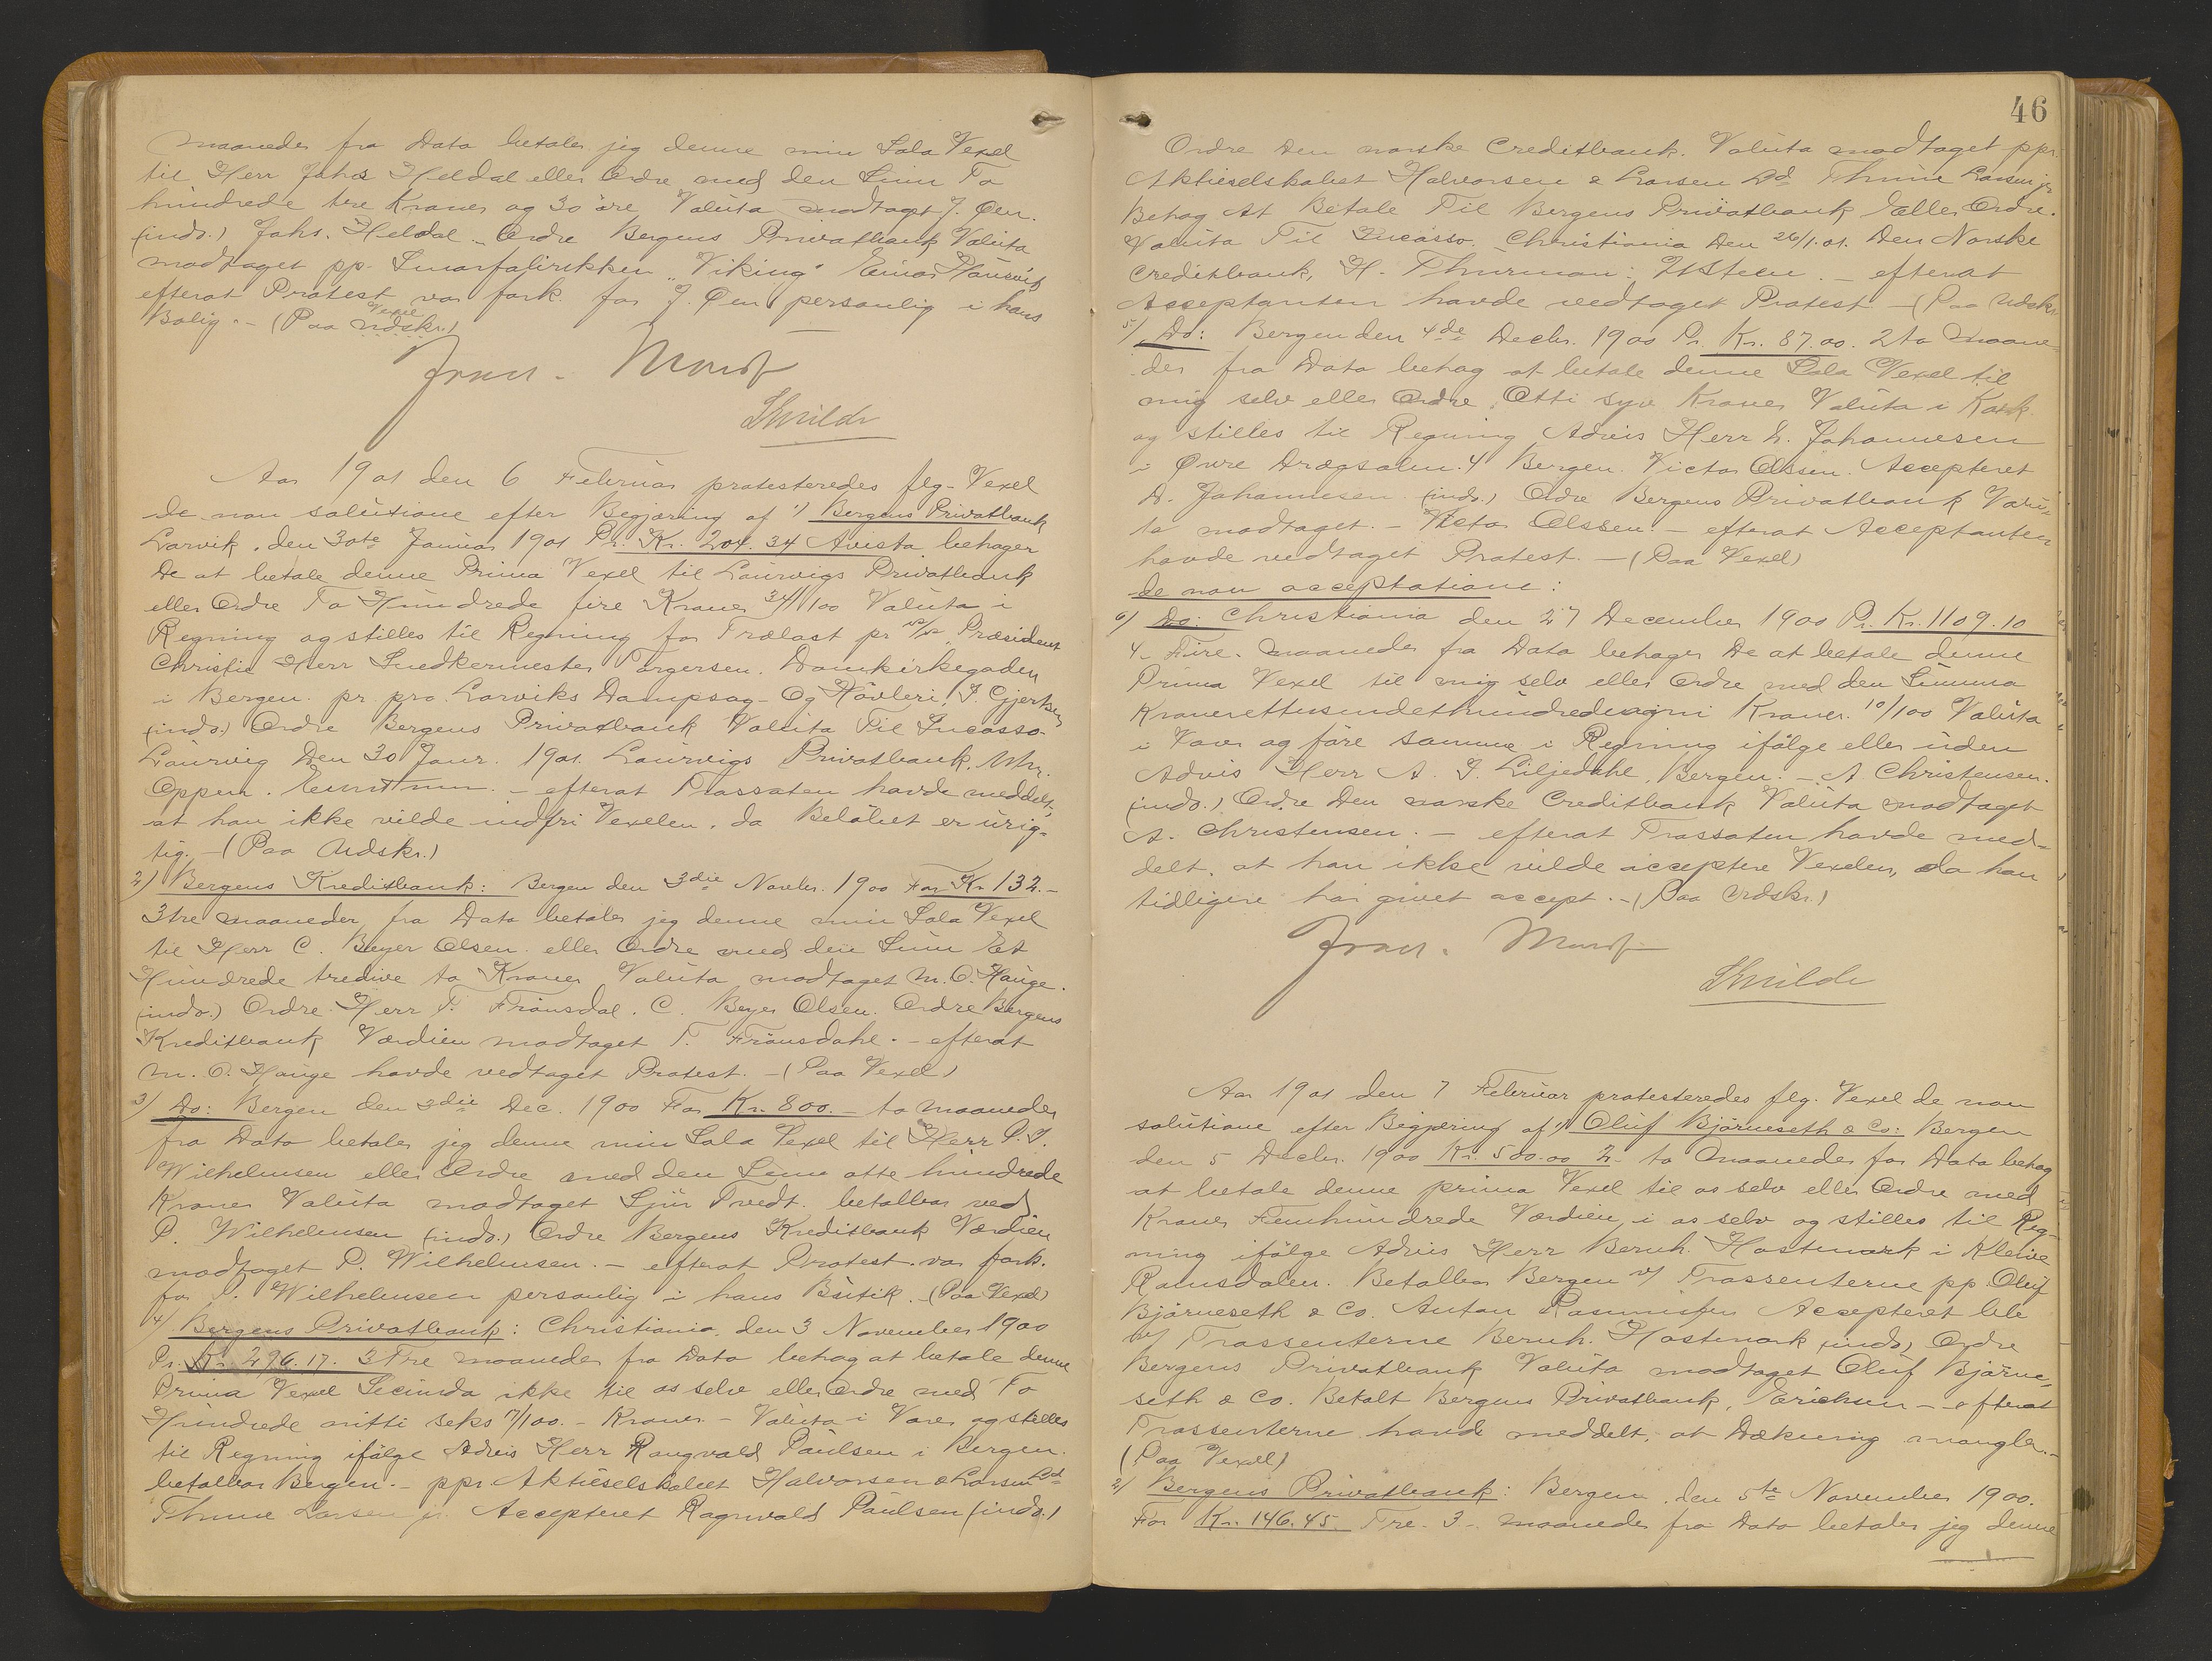 maaneder fra Dato betaler jeg denne min Sola Vexel
til Herr Johs Heldal eller Ordre med den Sum To
hundrede tre Kroner og 30 øre Valuta modtaget J. Øen.
(indo.) Johs. Heldal - Ordre Bergens Privatbank Valuta
modtaget pp. Smørfabrikken "Viking" Einar
efterat Protest var fork. for J. Øen personlig i hans
Bolig. - (Paa Udskr.)
Vexel
Aar 1901 den 6 Februar protesteredes flg. Vexel
de non solutione efter Begjæring af 1) Bergens Privatbank
Larvik, den 30te Januar 1901 Pr. Kr. 204.34 Avista behager
De at betale denne Prima Vexel til Laurvigs Privatbank
eller Ordre To Hundrede fire Kroner 34/100 Valuta i
Regning og stilles til Regning for Trælast pr s/s Præsident
Christie Herr Snedkermester Torgersen. Domkirkegaden
i Bergen. pr. pro. Larviks Dampsag- Og Høvleri, I. Gjertsen
(indo.) Ordre Bergens Privatbank Valuta Til Incasso.
Laurvig Den 30 Janr. 1901. Laurvigs Privatbank.
Oppen. - efterat Trassaten havde meddelt,
at han ikke vilde indfri Vexelen, da Beløbet er urig-
tig. - (Paa Udskr.)
2) Bergens Kreditbank: Bergen den 3die Novbr. 1900 For Kr 132.-
3 tre maaneder fra Dato betaler jeg denne min Sola Vexel
til Herr C. Beyer Olsen eller Ordre med den Sum Et
Hundrede tredive to Kroner Valuta modtaget M. O. Hauge.
(indo.) Ordre Herr T. Frønsdal. C. Beyer Olsen. Ordre Bergens
Kreditbank Værdien modtaget T. Frønsdahl. - efterat
M. O. Hauge havde vedtaget Protest. - (Paa Vexel)
3) Do: Bergen den 3die Dec. 1900 For Kr. 800.- to maaneder
fra Dato betaler jeg denne min Sola Vexel til Herr P. I.
Wilhelmsen eller Ordre med den Sum otte hundrede
Kroner Valuta modtaget Sjur Tvedt. betalbar ved
P. Wilhelmsen (indo.) Ordre Bergens Kreditbank Værdien
modtaget P. Wilhelmsen. - efterat Protest var fork.
for P. Wilhelmsen personlig i hans Butik. (Paa Vexel)
4) Bergens Privatbank: Christiania, den 3 November 1900
Pr. Kr 296.17. 3 Tre maaneder fra Dato behag at betale denne
Prima Vexel Secunda ikke til os selv eller Ordre med To
Hundrede nitti seks 17/100. - Kroner - Valuta i Varer og stilles
til Regning ifølge Advis Herr Rangvald Paulsen i Bergen.
betalbar Bergen. - ppr. Aktieselskabet Halvorsen & Larsen Ld
Thune Larsen jr. Accepteret Ragnvald Paulsen (indo.)
46
Ordre Den norske Creditbank. Valuta modtaget ppr.
Aktieselskabet Halvorsen & Larsen Ld Thune Larsen jr
Behag At Betale Til Bergens Privatbank Eller Ordre.
Valuta Til Incasso. Christiania Den 26/1.01. Den Norske
Creditbank, H. Thurman: - efterat
Acceptanten havde vedtaget Protest - (Paa Udskr.
5) Do: Bergen den 4de Decbr. 1900 Pr. Kr. 87.00. 2 to Maane-
der fra Dato behag at betale denne Sola Vexel til
mig selv eller Ordre. Otti syv Kroner Valuta i
og stilles til Regning Advis Herr D. Johannesen
i Øvre Drægsalm. 4 Bergen. Victor Olssen. Accepteret
D. Johannesen (indo.) Ordre Bergens Privatbank Valu-
ta modtaget. - Victor Olssen. - efterat Acceptanten
havde vedtaget Protest. - (Paa Vexel)
de non acceptatione:
6) Do: Christiania den 27 December 1900 Pr. Kr. 1109.10
4 - Fire - maaneder fra Dato behager De at betale denne
Prima Vexel til mig selv eller Ordre med den Summa
Kronerettusindethundredeogni Kroner. 10/100 Valuta
i Varer og føre samme i Regning ifølge eller uden
Advis Herr A. I. Liljedahl, Bergen. - A. Christensen.
(indo.) Ordre Den norske Creditbank Valuta modtaget
A. Christensen. - efterat Trassaten havde med-
delt, at han ikke vilde acceptere Vexelen, da han
tidligere har givet accept. - (Paa Udskr.)
Aar 1901 den 7 Februar protesteredes flg. Vexel de non
solutione efter Begjæring af 1) Oluf Bjørneseth & Co: Bergen
den 5 Decbr. 1900 Kr. 500.00 2. to Maaneder for Dato behag
at betale denne prima Vexel til os selv eller Ordre med
Kroner Femhundrede Værdien i os selv og stilles til Reg-
ning ifølge Advis Herr Bernh. Hostmark i Kleive
Romsdalen. Betalbar Bergen v/ Trassenterne pp. Oluf
Bjørneseth & Co. Anton Rasmussen Accepteret
v/ Trassenterne Bernh. Hostmark (indo) Ordre
Bergens Privatbank Valuta modtaget Oluf Bjørne-
seth & Co. Betalt Bergens Privatbank, Erichsen - efterat
Trassenterne havde meddelt, at Dækning mangler. -
(Paa Vexel)
2) Bergens Privatbank: Bergen, den 5te November 1900.
For Kr. 146.45. Tre - 3 - maaneder fra Dato betaler jeg denne